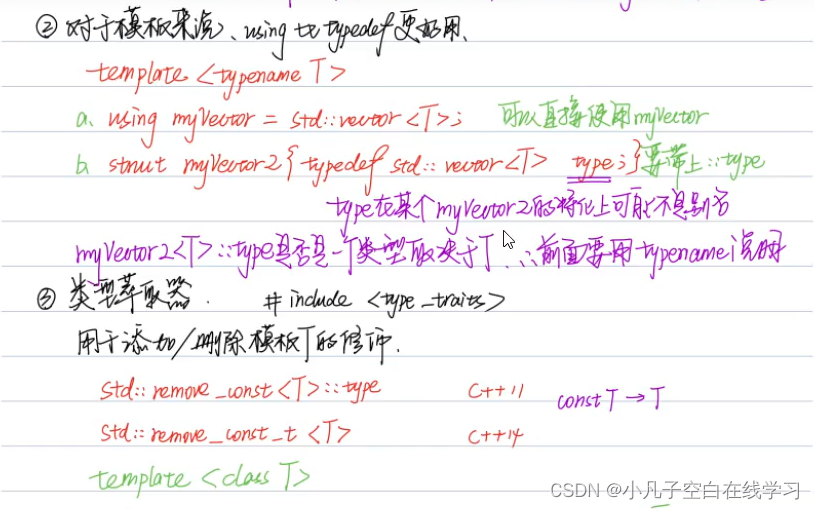 ② 对于模板来说、using 比 typedef 更好用、
template <typename T>
a. using myVector = std::vector<T>; 可以直接使用myVector
b. struct myVector2{typedef std::vector<T> type;}要带上::type
type在某个myVector2的特化上可能不是别名
myVector2<T>::type是否是一个类型取决于T. ∴前面要用typename说明
③ 类型萃取器. #include <type_traits>
用于添加/删除模板T的修饰.
std::remove_const<T>::type C++11 const T → T
std::remove_const_t<T> C++14
template <class T>
CSDN @小凡子空白在线学习